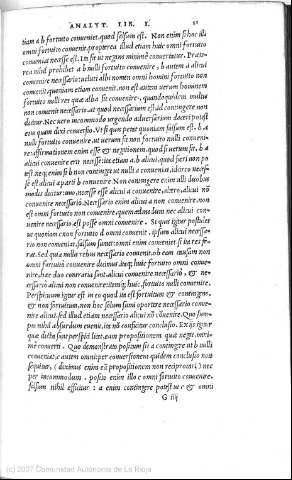 ANALYT. LIB. I. 51
tiam a b fortuito conueniet, quod falsum est. Non enim si hoc illi
omni fortuito conuenit, propterea illud etiam huic omni fortuito
conueniat necesse est. Ita fit ut negans minimè conuertatur. Præte-
rea nihil prohibet a b nulli fortuito conuenire, b autem a alicui
conuenire necessariò: ueluti albi nomen omni homini fortuito non
conuenit quoniam etiam conuenit, non est autem uerum hominem
fortuito nulli rei quæ alba sit conuenire, quandoquidem multis
non conuenit necessariò, at quod necessarium est ad contingere non
dicitur. Nec uero incommodo urgendo aduersarium doceri potest
eam quam dixi conuerti. Vt si quis petat quoniam falsum est. b a
nulli conuenire fortuito, at uerum sit non fortuito nulli conueni-
re: affirmationem enim esse & negationem. quod si uerum sit, b a
alicui conuenire erit necesse: ita etiam a b. alicui, quod fieri non po
test. neq; enim si b non contingat ut nulli a conueniat, idcirco neces-
se est alicui a parti b conuenire. Non contingere enim alli duobus
modis dicitur: uno, necesse esse alicui a conuenire, altero, alicui nõ
conuenire necessariò. Necessariò enim alicui a non conuenire, non
est omni fortuito non conuenire, quemadmodum nec alicui con-
uenire necessariò. est posse omni conuenire. Si quis igitur postulet
ut quoniam c non fortuito d omni conuenit, ipsum alicui necessa-
riò non conueniat, falsum sumat: omni enim conuenit si ita res fe-
rat. Sed quia nulla rebus necessariò conuenit, ob eam causam non
omni fortuito conuenire dicimus. itaq; huic fortuito omni conue-
nire, hæc duo contraria sunt alicui conuenire necessariò, & ne-
cessariò alicui non conuenire. itemq; huic, fortuito nulli conuenire.
Perspicuum igitur est in eo quod ita est fortuitum & contingens,
& non fortuitum, non hoc solum sumi oportere necessariò conue-
nire alicui. sed illud etiam necessariò alicui nõ cõuenire. Quo sum-
pto nihil absurdum euenit, ita nõ conficitur conclusio. Ex ijs igitur
quæ dicta sunt perspici licet, eam propositionem quæ negat, mini-
mè conuerti. Quo demonstrato positum sit a contingere ut b nulli
conueniat, c autem omni: per conuersionem quidem conclusio non
sequitur, (diximus enim eã propositionem non reciprocari) nec
per incommodum. posito enim illo c omni fortuito conuenire,
falsum nihil efficitur: a enim contingere potest ut c & omni
G iij
(c) 2007 Comunidad Autónoma de La Rioja